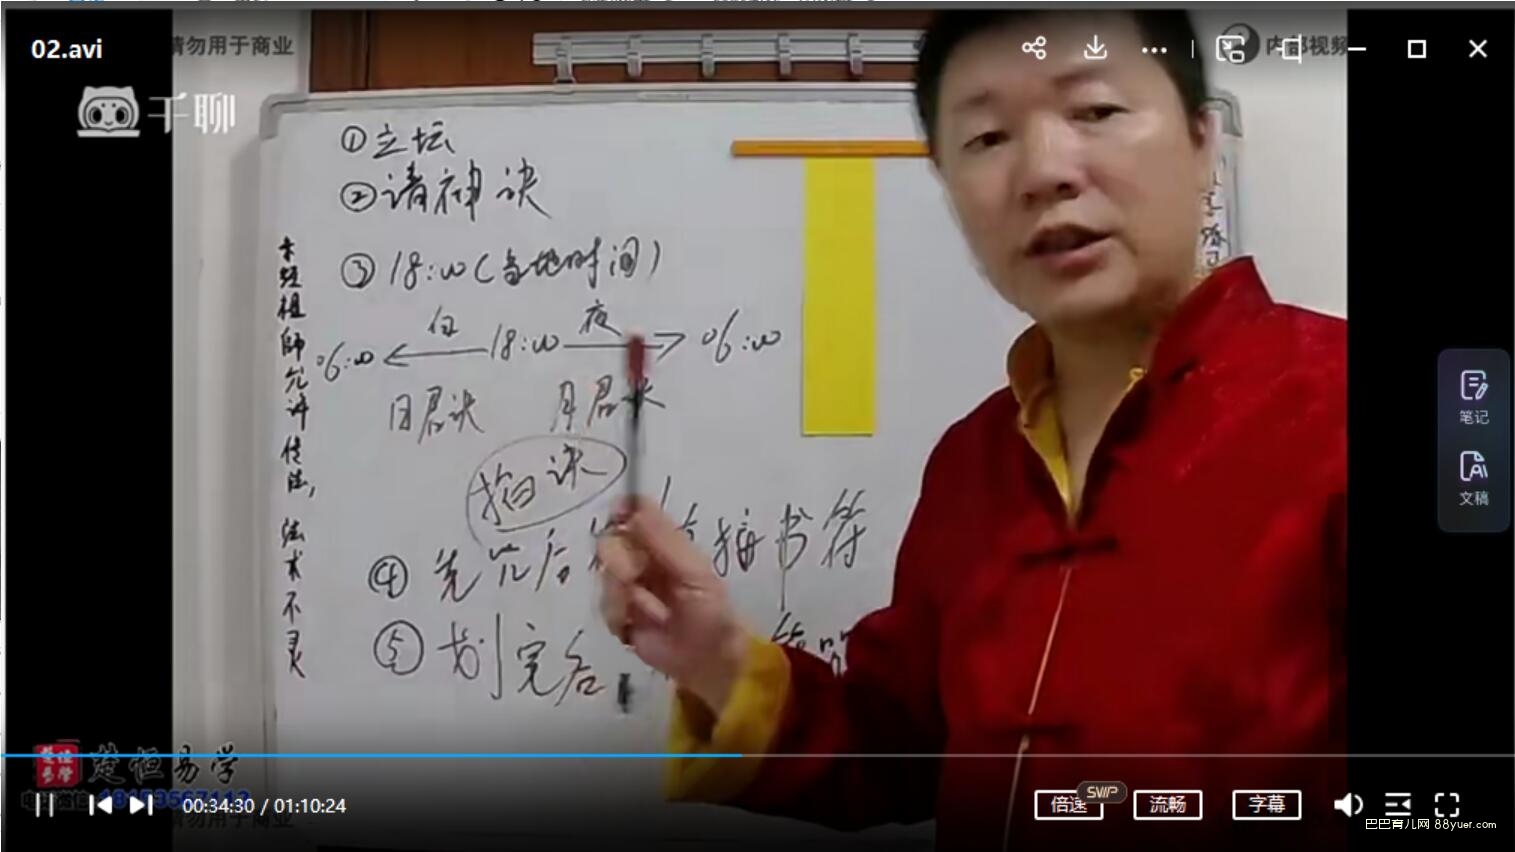 02.avi
请勿用于商业
内部视频
千聊
①立坛
②请神诀
③18:00(当地时间)
白
夜
06:00
18:00
06:00
日君诀
月君诀
掐诀
④先
后
直接书符
⑤划完后
符
未经祖師允许传法,法术不灵
笔记
文稿
楚恒易学
00:34:30 / 01:10:24
倍速
SVIP
流畅
字幕
请勿用于商业
巴巴育儿网 88yuer.com